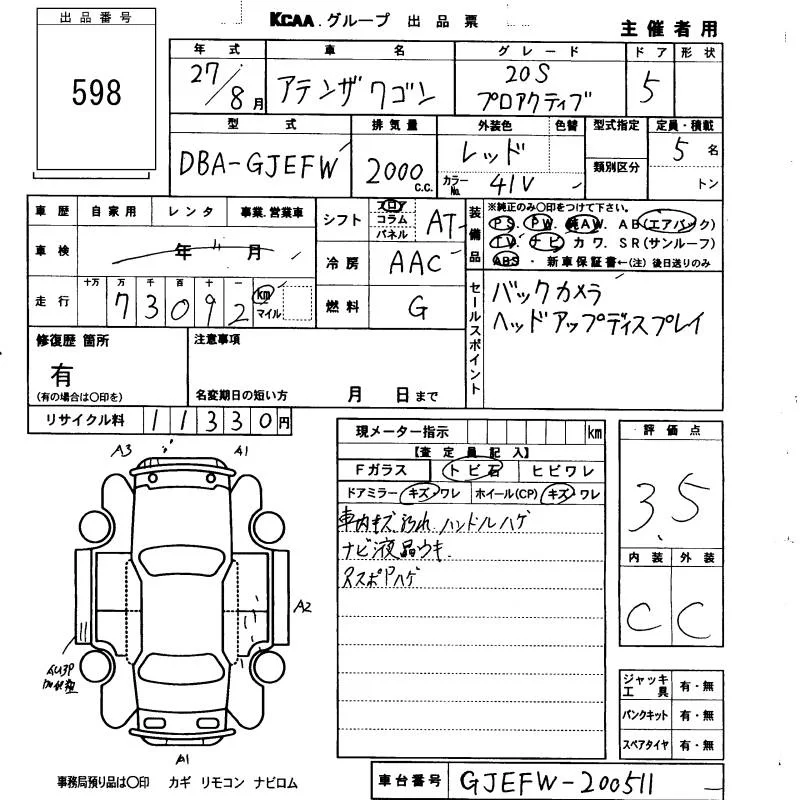 出品番号
598
KCAA.グループ 出品票
主催者用
年式 車名 グレード ドア 形状
27/8月 アテンザワゴン 20S プロアクティブ 5
型式 排気量 外装色 色替 型式指定 定員・積載
DBA-GJEFW 2000 C.C. レッド 5名
カラーNo. 41V 類別区分 トン
車歴 自家用 レンタ 事業.営業車
シフト フロア コラム パネル AT
装備品 ※純正のみ〇印をつけて下さい。
PS. PW. 純AW. AB(エアバック)
TV. ナビ カワ. SR(サンルーフ)
ABS・新車保証書←(注)後日送りのみ
車検 年 月
冷房 AAC
走行 十万 万 千 百 十 一
73092 km マイル
燃料 G
セールスポイント
バックカメラ
ヘッドアップディスプレイ
修復歴 箇所
有
(有の場合は〇印を)
注意事項
名変期日の短い方 月 日まで
リサイクル料 11330円
現メーター指示 km
【査定員記入】
Fガラス トビ石 ヒビワレ
ドアミラー キズ・ワレ ホイール(CP) キズ・ワレ
車内キズ 汚れ ハンドルハゲ
ナビ液晶ウキ
評価点
3.5
内装 外装
C C
A3
A1
A2
A1
ジャッキ工具 有・無
パンクキット 有・無
スペアタイヤ 有・無
事務局預り品は〇印 カギ リモコン ナビロム
車台番号 GJEFW-200511